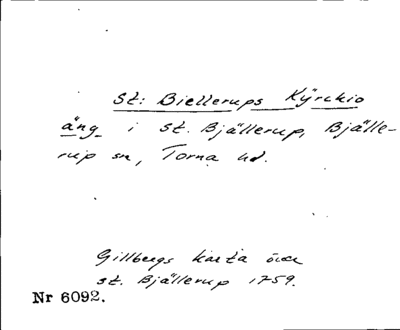 St: Biellerups Kÿrckio
äng i St. Bjällerup, Bjälle-
rup sn, Torna hd.
Gillbergs karta över
St. Bjällerup 1759.
Nr 6092.